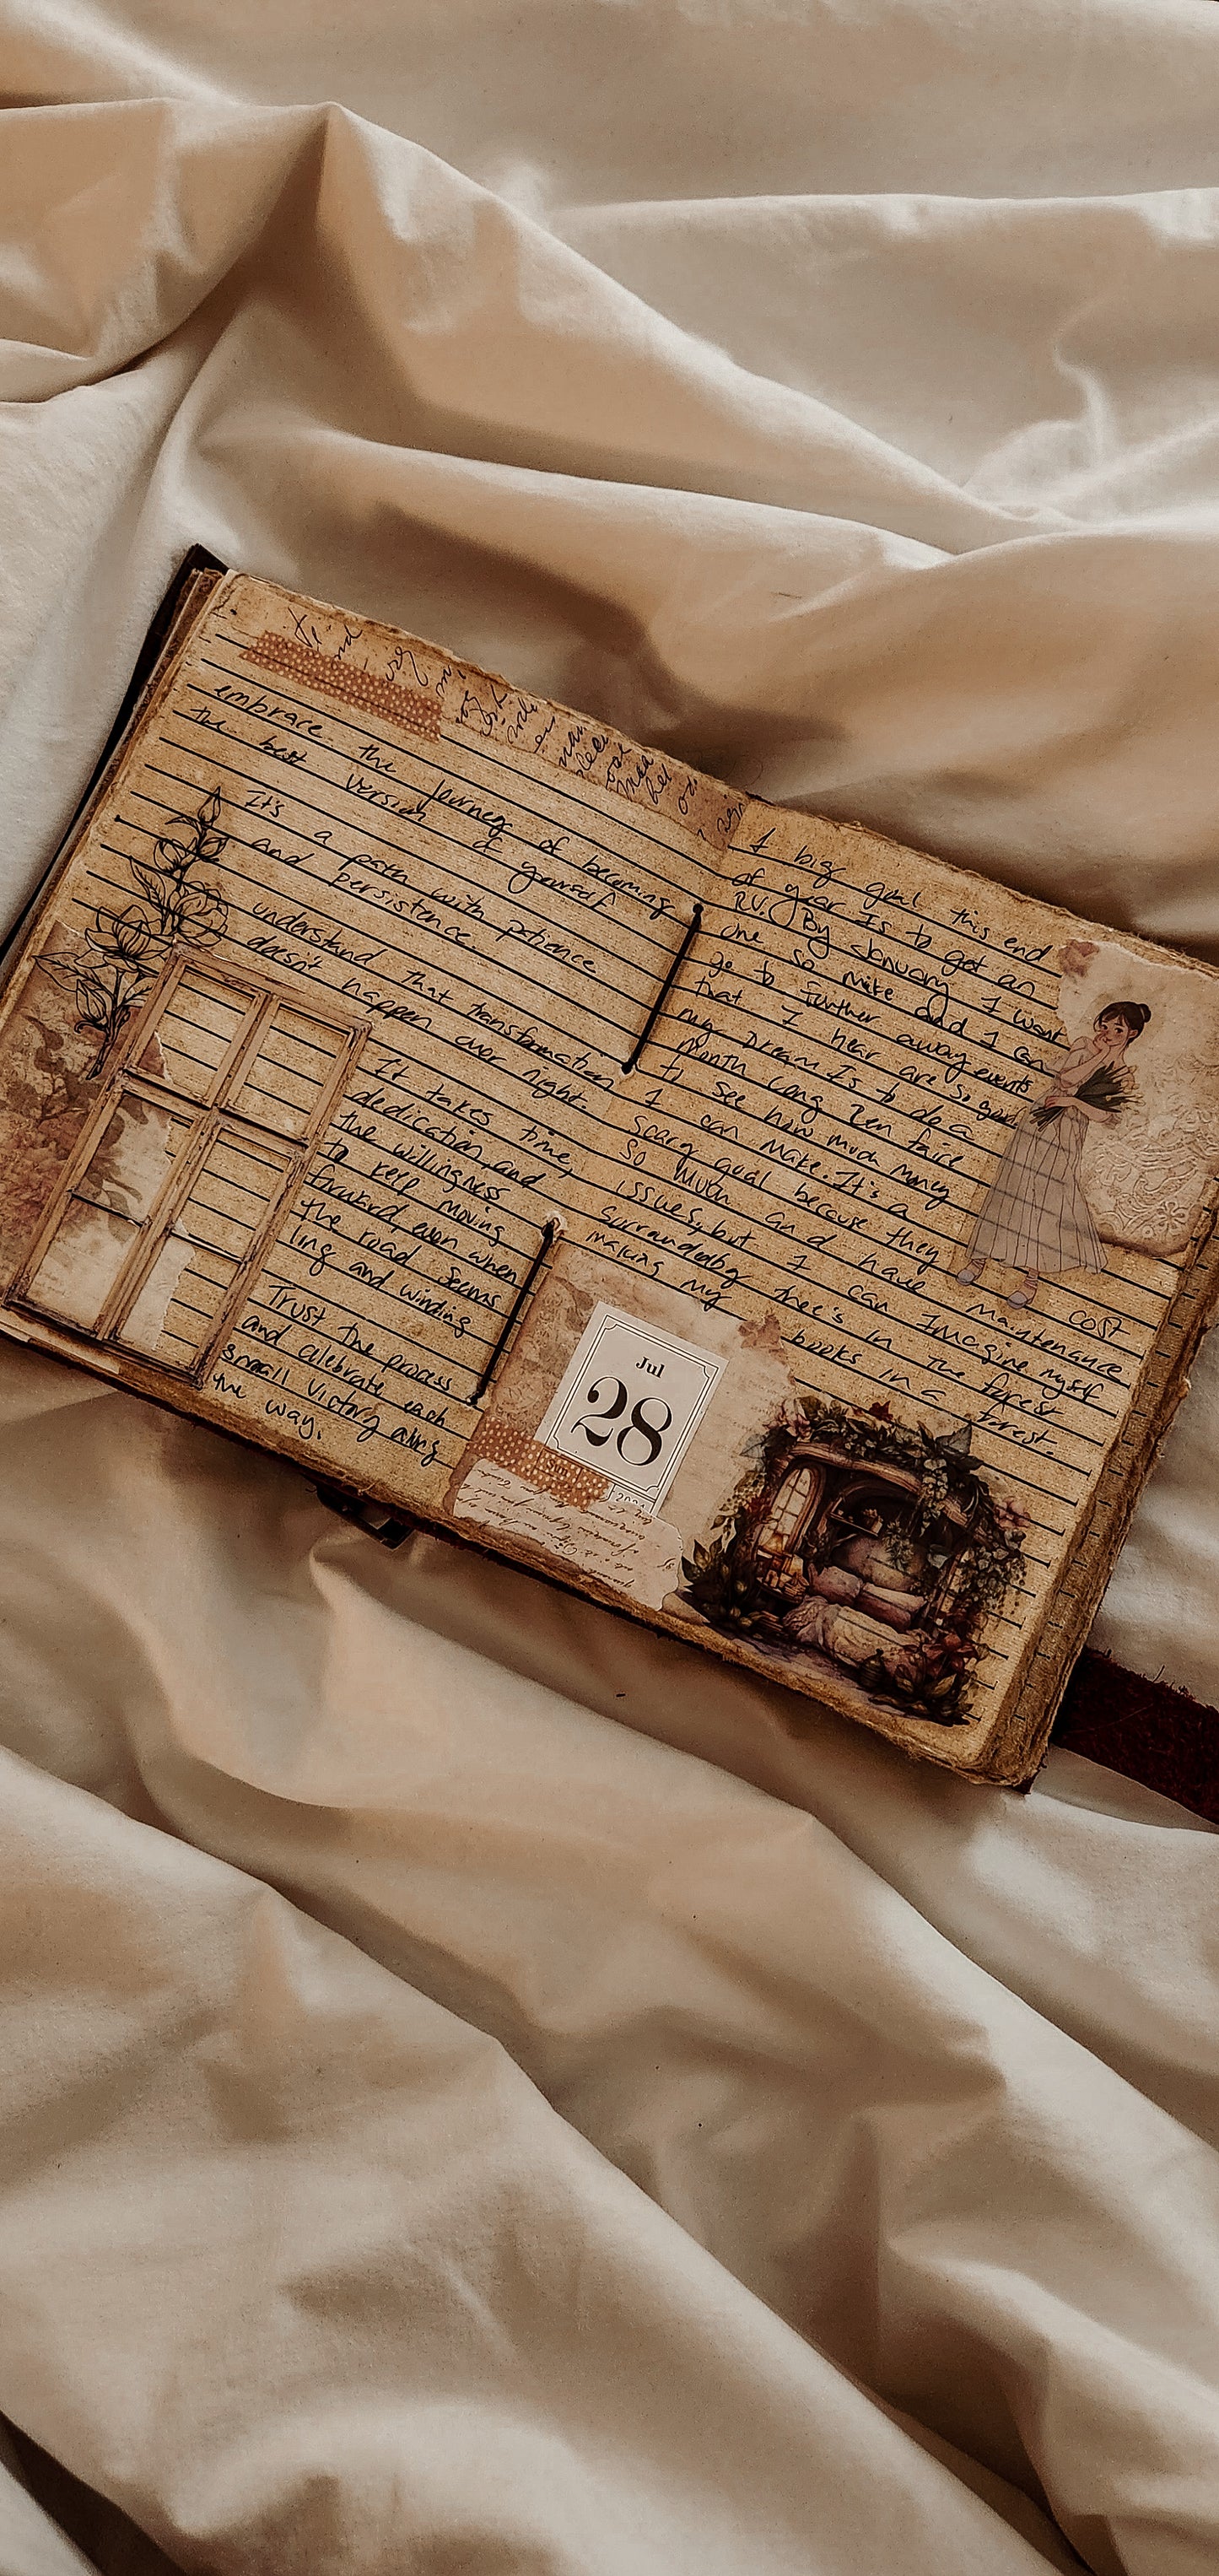 embrace the journey of becoming
the best version of yourself
It's a path with patience
and persistence.
understand that transformation
doesn't happen over night.
It takes time,
dedication, and
the willingness
to keep moving
forward, even when
the road seems
ling and winding
Trust the process
and celebrate each
small victory along
the way.
1 big goal this end
of year Is to get an
RV. By January I want
one so Mike and I can
go to further away events
that I hear are so good.
my Dream Is to do a
month long Ren faire
to see how much money
I can make. It's a
Scary goal because they cost
So Much and have maintenance
issues, but I can Imagine myself
surrounded by tree's in the forest
making my books in a forest.
Jul
28
Sun